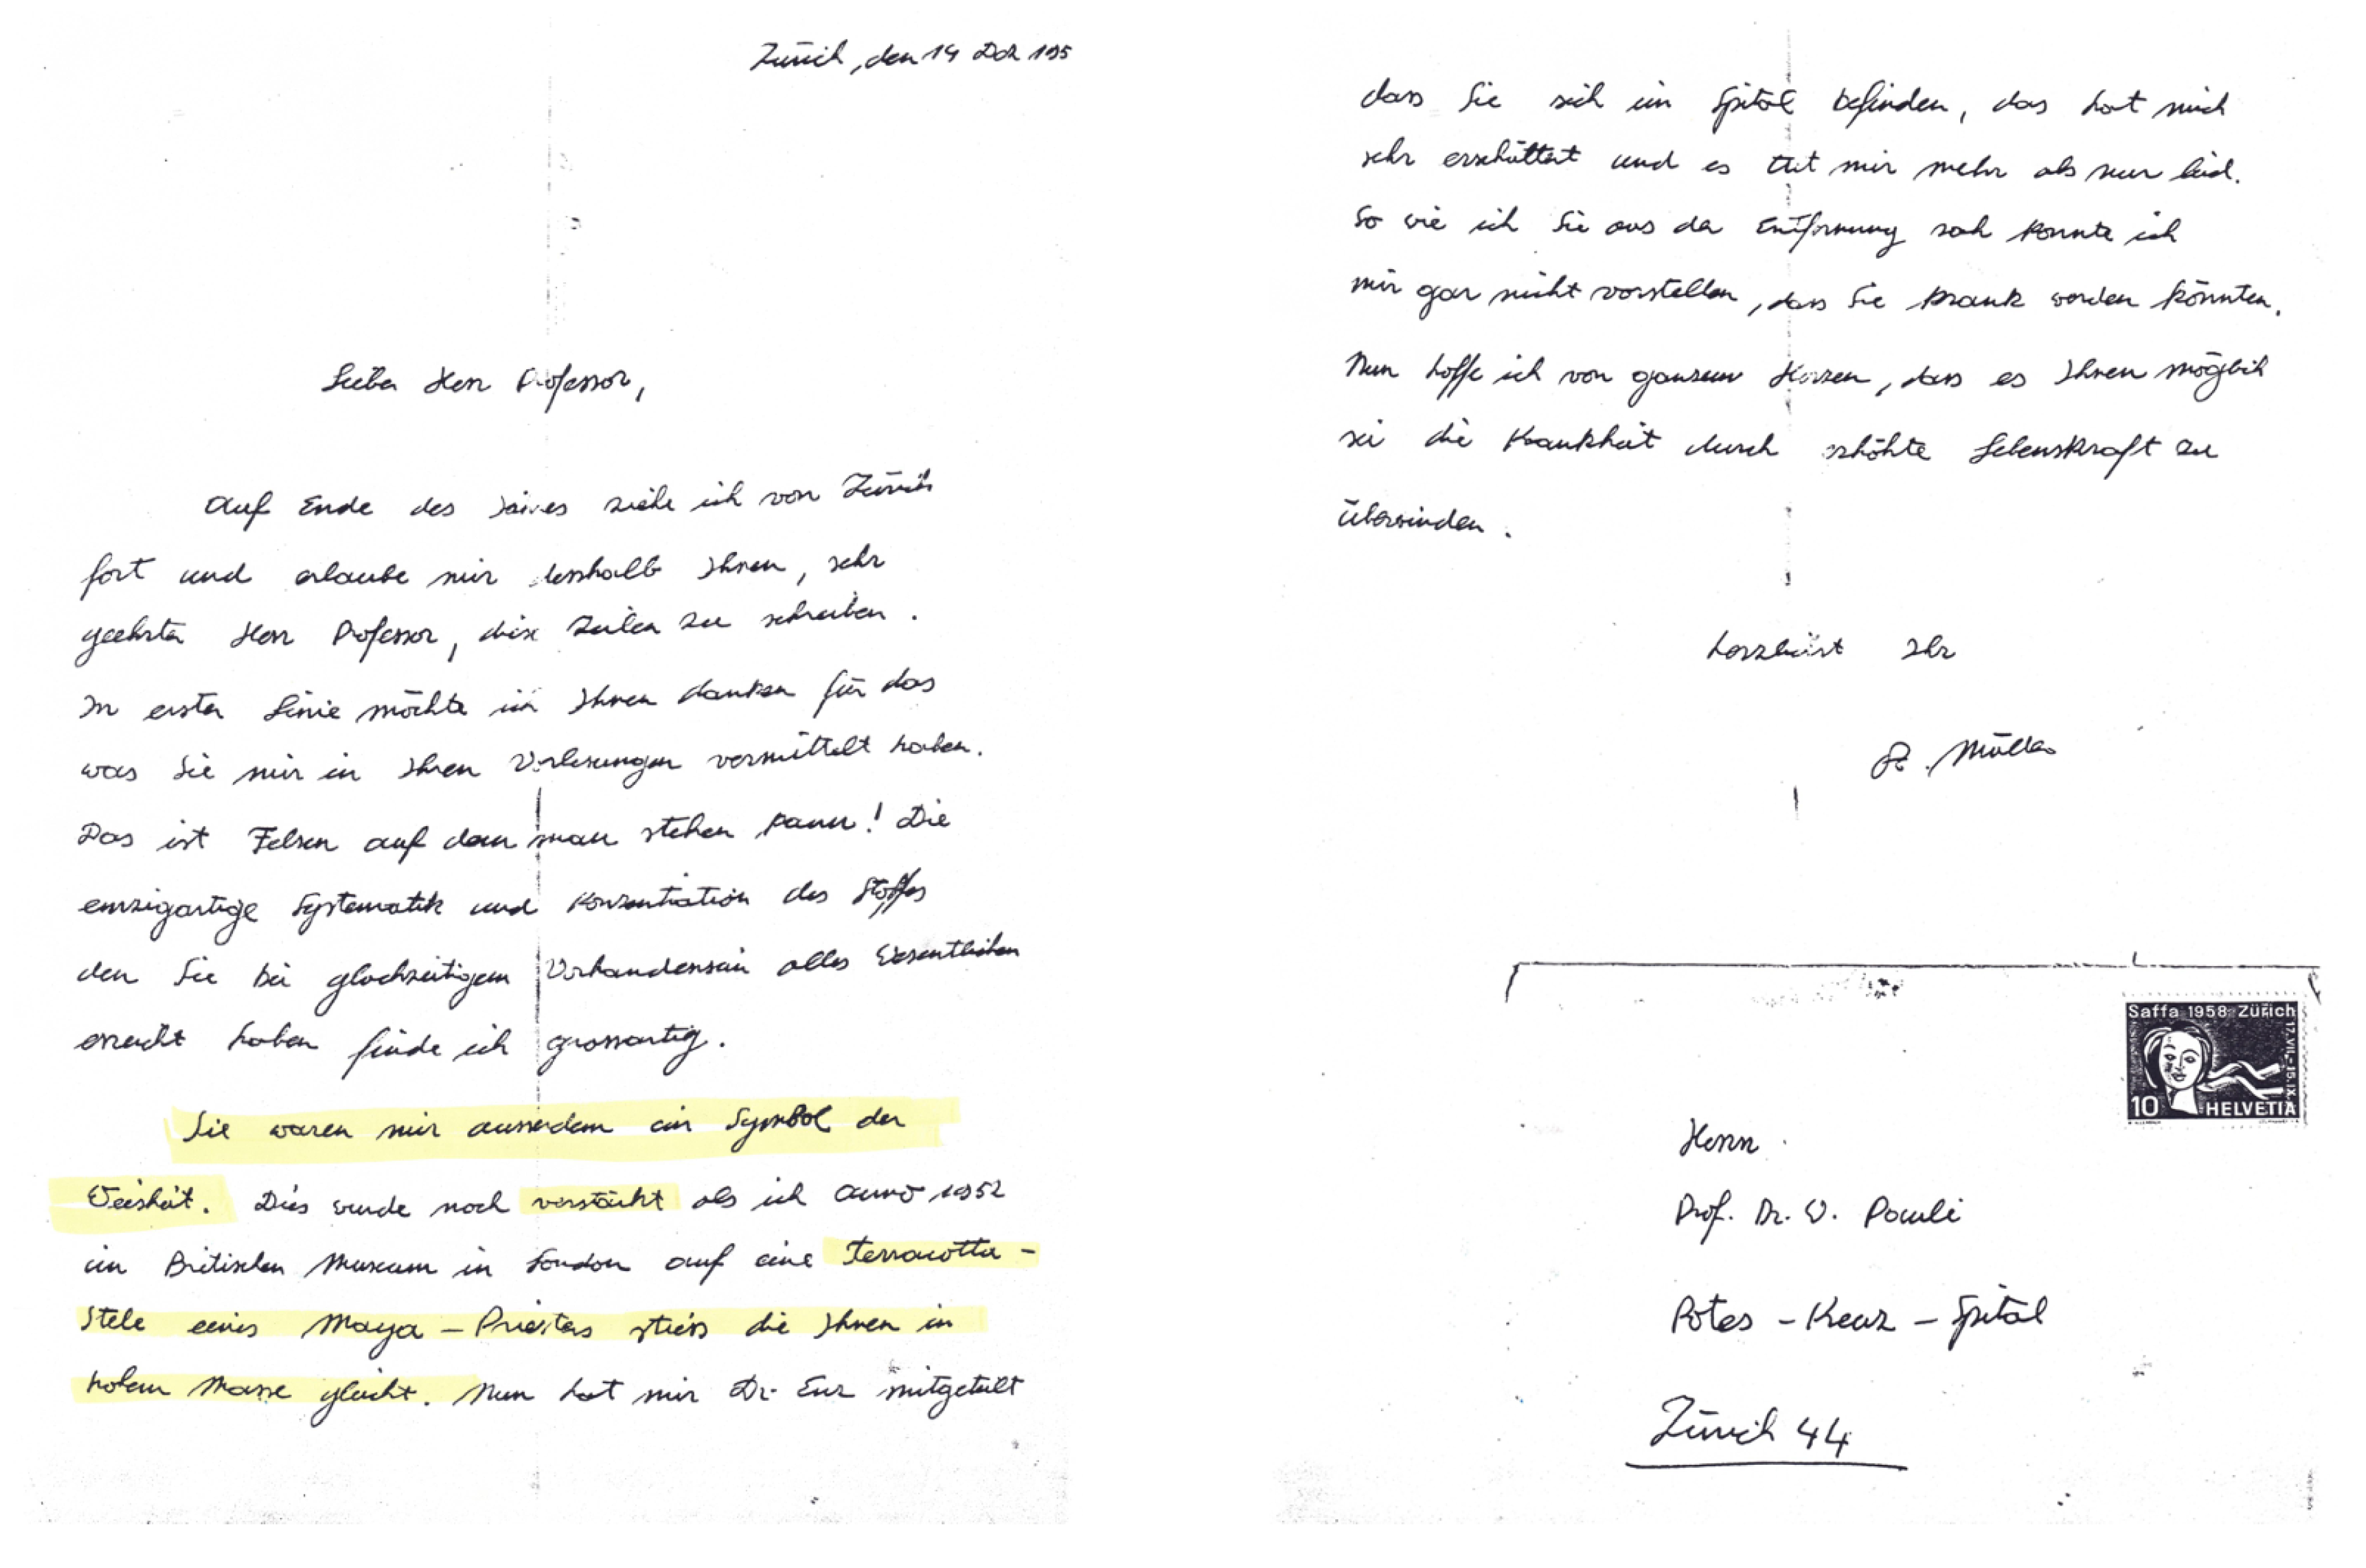 Zürich, den 14 Dez 195
Lieber Herr Professor,
Auf Ende des Jahres ziehe ich von Zürich
fort und erlaube mir desshalb Ihnen, sehr
geehrter Herr Professor, diese Zeilen zu schreiben.
In erster Linie möchte ich Ihnen danken für das
was Sie mir in Ihren Vorlesungen vermittelt haben.
Das ist Felsen auf dem man stehen kann! Die
einzigartige Systematik und Konzentration des Stoffes
den Sie bei gleichzeitigem Vorhandensein alles Wesentlichen
erreicht haben finde ich grossartig.
Sie waren mir ausserdem ein Symbol der
Weisheit. Dies wurde noch verstärkt als ich anno 1952
im Britischen Museum in London auf eine Terracotta-
Stele eines Maya-Priesters stiess die Ihnen in
hohem Masse gleicht. Nun hat mir Dr. Enz mitgeteilt
dass Sie sich im Spital befinden, das hat mich
sehr erschüttert und es tut mir mehr als nur leid.
So wie ich Sie aus der Entfernung sah konnte ich
mir gar nicht vorstellen, dass Sie krank werden könnten.
Nun hoffe ich von ganzem Herzen, dass es Ihnen möglich
sei die Krankheit durch erhöhte Lebenskraft zu
überwinden.
herzlichst Ihr
Müller
Saffa 1958 Zürich
17.VII.-15.IX.
10 HELVETIA
Herrn
Prof. Dr. W. Pauli
Rotes-Kreuz-Spital
Zürich 44